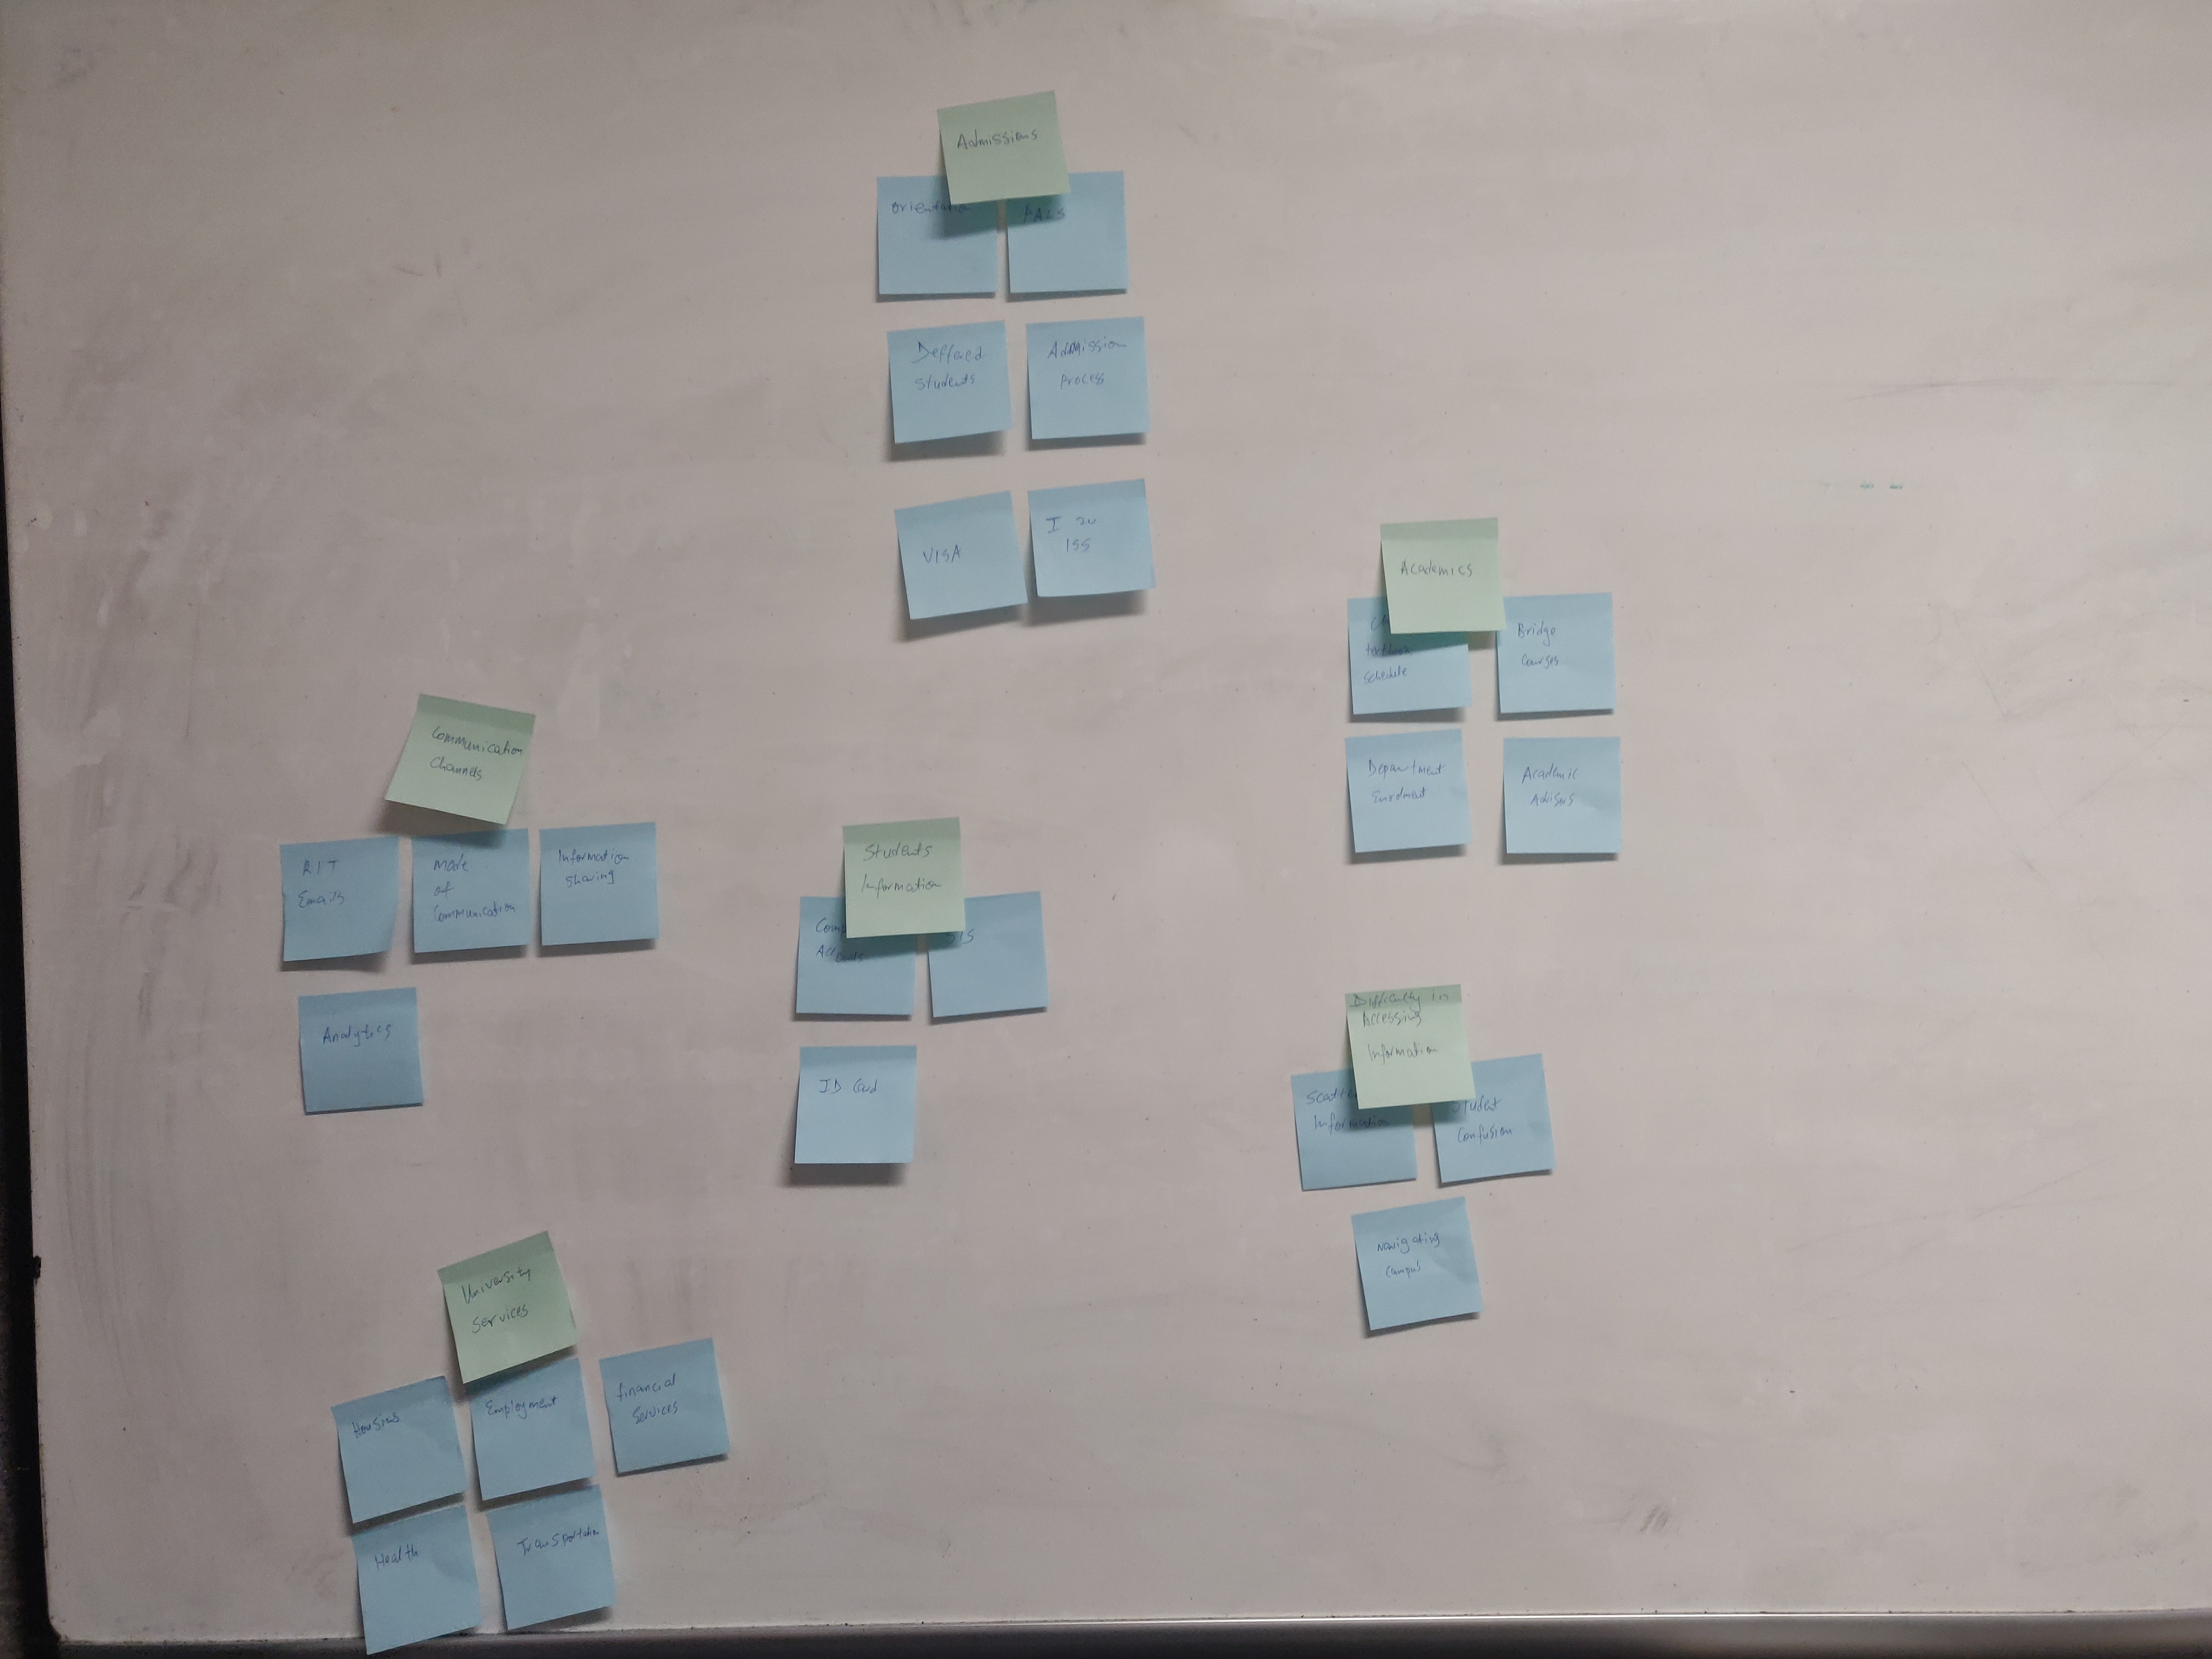 Admissions
Orientation
PALS
Deffered
Students
Admission
Process
VISA
I 20
ISS
Academics
Schedule
Bridge
Courses
Department
Enrolment
Academic
Advisors
Communication
Channels
RIT
Emails
Mode
of
Communication
Information
Sharing
Analytics
Students
Information
Accounts
SIS
ID Card
Difficulty in
Accessing
Information
Information
Student
Confusion
Navigating
Campus
University
Services
Housing
Employment
financial
Services
Health
Transportation